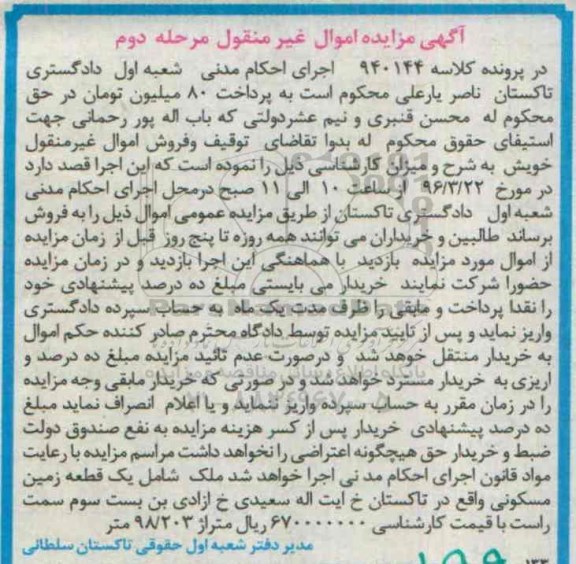 آگهی مزایده اموال غیر منقول مرحله دوم
در پرونده کلاسه ۹۴۰۱۴۴ اجرای احکام مدنی شعبه اول دادگستری
تاکستان ناصر یارعلی محکوم است به پرداخت ۸۰ میلیون تومان در حق
محکوم له محسن قنبری و نیم عشردولتی که باب اله پور رحمانی جهت
استیفای حقوق محکوم له بدوا تقاضای توقیف وفروش اموال غیرمنقول
خویش به شرح و میزان کارشناسی ذیل را نموده است که این اجرا قصد دارد
در مورخ ۹۶/۳/۲۲ از ساعت ۱۰ الی ۱۱ صبح درمحل اجرای احکام مدنی
شعبه اول دادگستری تاکستان از طریق مزایده عمومی اموال ذیل را به فروش
برساند طالبین و خریداران می توانند همه روزه تا پنج روز قبل از زمان مزایده
از اموال مورد مزایده بازدید با هماهنگی این اجرا بازدید و در زمان مزایده
حضورا شرکت نمایند خریدار می بایستی مبلغ ده درصد پیشنهادی خود
را نقدا پرداخت و مابقی را ظرف مدت یک ماه به حساب سپرده دادگستری
واریز نماید و پس از تایید مزایده توسط دادگاه محترم صادر کننده حکم اموال
به خریدار منتقل خواهد شد و درصورت عدم تائید مزایده مبلغ ده درصد و
اریزی به خریدار مسترد خواهد شد و در صورتی که خریدار مابقی وجه مزایده
را در زمان مقرر به حساب سپرده واریز ننماید و یا اعلام انصراف نماید مبلغ
ده درصد پیشنهادی خریدار پس از کسر هزینه مزایده به نفع صندوق دولت
ضبط و خریدار حق هیچگونه اعتراضی را نخواهد داشت مراسم مزایده با رعایت
مواد قانون اجرای احکام مد نی اجرا خواهد شد ملک شامل یک قطعه زمین
مسکونی واقع در تاکستان خ ایت اله سعیدی خ ازادی بن بست سوم سمت
راست با قیمت کارشناسی ۶۷۰۰۰۰۰۰۰ ریال متراژ ۹۸/۲۰۳ متر
مدیر دفتر شعبه اول حقوقی تاکستان سلطانی